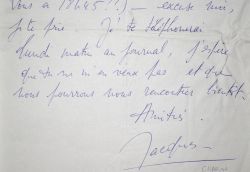 vous à 18h45 !?) — excuse moi,
je te prie. Je te téléphonerai
lundi matin au journal, j'espère
que tu ne m'en veux pas et que
nous pourrons nous rencontrer bientôt
Amitiés.
Jacques